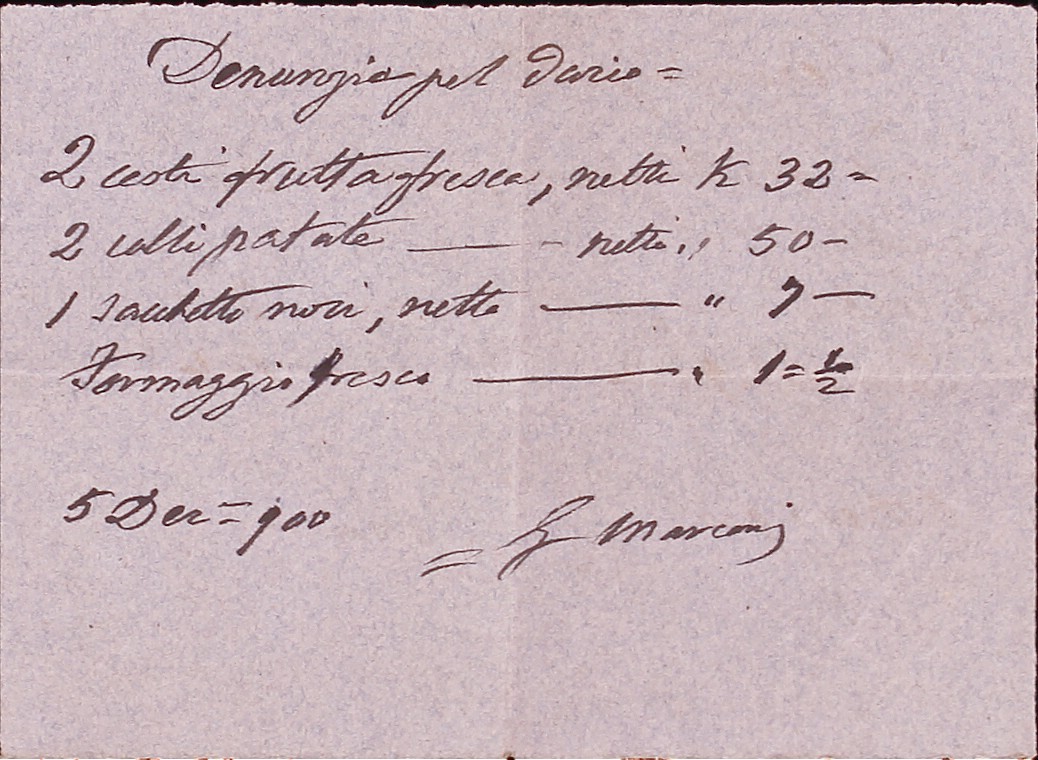 Denunzia pel Dazio =
2 cesti frutta fresca, netti K 32 =
2 colli patate —— - netti " 50 -
1 sacchetto noci, netto —— " 7 —
Formaggio fresco —— " 1 = 1/2
5 Dec = 900
= G Marconi